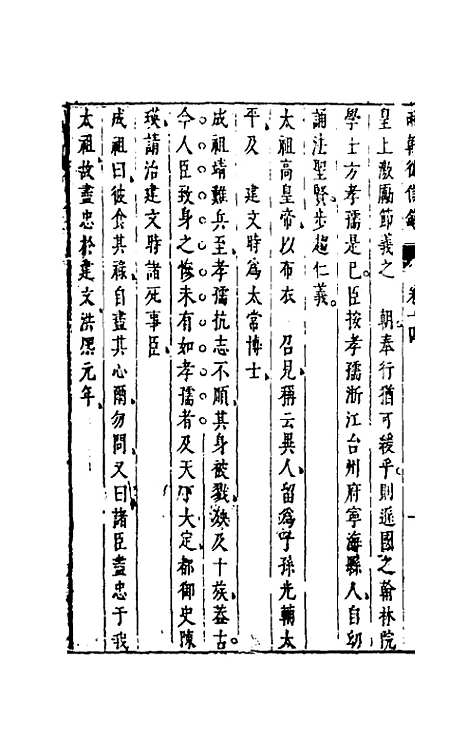 兩朝從信錄 卷十四 一
皇上激勵節義之 朝奉行猶可緩乎則遜國之翰林院
學士方孝孺是巳臣按孝孺浙江台州府寧海縣人自幼
誦法聖賢步趨仁義
太祖高皇帝以布衣 召見稱云異人留為子孫光輔太
平及 建文時為太常博士
成祖靖難兵至孝孺抗志不順其身被戮殃及十族葢古
今人臣致身之慘未有如孝孺者及天下大定都御史陳
瑛請治建文時諸死事臣
成祖曰彼食其祿自盡其心爾勿問又曰諸臣盡忠于我
太祖故盡忠於建文洪熙元年